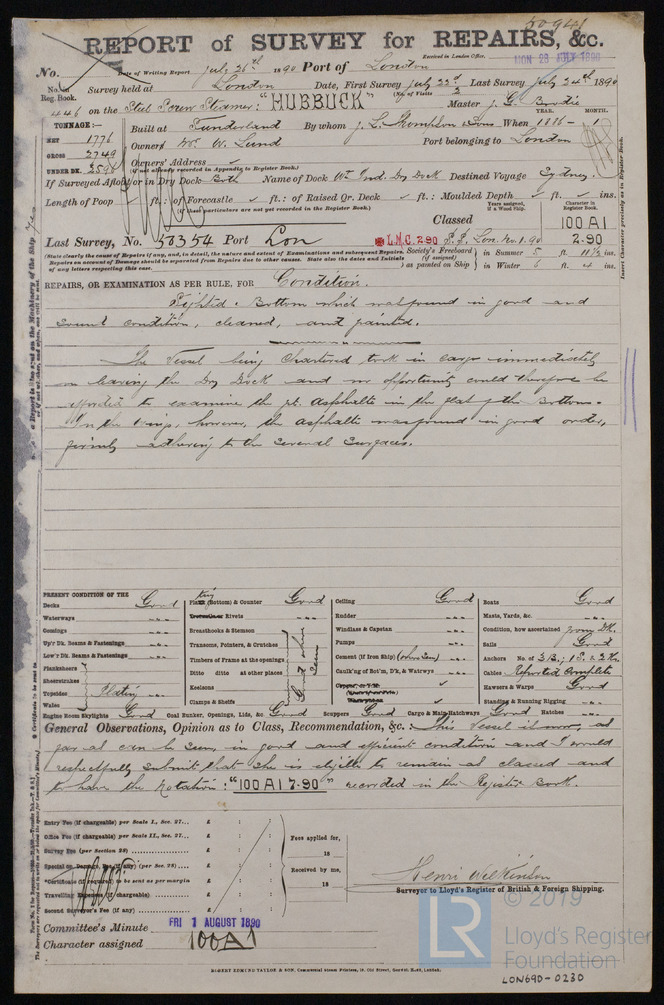 50941
REPORT of SURVEY for REPAIRS, &c.
Received in London Office. MON 28 JULY 1890
No. Date of Writing Report July 26th 1890 Port of London
No. in Reg. Book. Survey held at London Date, First Survey July 22d Last Survey July 24th 1890
(No. of Visits 2
446 on the Steel Screw Steamer: "HUBBUCK" Master J. G. Brodie
TONNAGE:— YEAR. MONTH.
NET 1776 Built at Sunderland By whom J. L. Thompson & Sons When 1886 - 1
GROSS 2749 Owners W. W. Lund Port belonging to London
UNDER DK. Owners' Address
(If not already recorded in Appendix to Register Book.)
If Surveyed Afloat or in Dry Dock Both Name of Dock Wt. Ind. Dry Dock Destined Voyage Sydney.
Length of Poop ✓ ft.: of Forecastle ✓ ft.: of Raised Qr. Deck ✓ ft.: Moulded Depth ✓ ft. ✓ ins.
(If these particulars are not yet recorded in the Register Book.)
Years assigned, if a Wood Ship. Character in Register Book.
Classed 100 A1
Last Survey, No. 53354 Port Lon L.M.C. 2.90 S.S. Lon. No. 1. 90 2-90
(State clearly the cause of Repairs if any, and, in detail, the nature and extent of Examinations and subsequent Repairs.
Repairs on account of Damage should be separated from Repairs due to other causes. State also the dates and Initials
of any letters respecting this case.
Society's Freeboard (if assigned) as painted on Ship in Summer 5 ft. 11½ ins.
in Winter 6 ft. ins.
REPAIRS, OR EXAMINATION AS PER RULE, FOR Condition.
Sighted. Bottom which was found in good and
sound condition, cleaned, and painted.
The Vessel being Chartered took in cargo immediately
on leaving the Dry Dock and no opportunity could therefore be
afforded to examine the pt. Asphalte in the flat of the Bottom.
In the wings, however, the asphalte was found in good order,
firmly adhering to the several surfaces.
PRESENT CONDITION OF THE
Decks Good
Waterways " " "
Comings " " "
Up'r Dk. Beams & Fastenings " " "
Low'r Dk. Beams & Fastenings " " "
Planksheers
Sheerstrakes
Topsides Plating
Wales
Plating (Bottom) & Counter Good
Rivets " " "
Breasthooks & Stemson
Transoms, Pointers, & Crutches
Timbers of Frame at the openings
Ditto ditto at other places
Keelsons
Clamps & Shelfs
Good where seen
Ceiling Good
Rudder " " "
Windlass & Capstan " " "
Pumps " " "
Cement (if Iron Ship) (where seen) " " "
Caulking of Bot'm, D'k, & Watrwys " " "
Boats Good
Masts, Yards, &c. " " "
Condition, how ascertained from Dk.
Sails Good
Anchors No. of 3 B., 1 S. & 2 K.
Cables Reported Complete
Hawsers & Warps Good
Standing & Running Rigging " " "
Engine Room Skylights Good Coal Bunker, Openings, Lids, &c. Good Scuppers Good Cargo & Main Hatchways Good Hatches " " "
General Observations, Opinion as to Class, Recommendation, &c.: This Vessel is now, as
far as can be seen, in good and efficient condition and I would
respectfully submit that she is eligible to remain as classed and
to have the notation: "100 A1 7-90" recorded in the Register Book.
Entry Fee (if chargeable) per Scale I., Sec. 27... £ : :
Office Fee (if chargeable) per Scale II., Sec. 27... £ : :
Survey Fee (per Section 28) £ : :
Special or Damage Fee (if any) (per Sec. 28) £ : :
*Certificate (if required) to be sent as per margin £ : :
Travelling Expenses (if chargeable) £ : :
Second Surveyor's Fee (if any) £ : :
Fees applied for,
18
Received by me,
18
Henri Wilkinson
Surveyor to Lloyd's Register of British & Foreign Shipping.
Committee's Minute FRI 1 AUGUST 1890
Character assigned 100A1
ROBERT EDMUND TAYLOR & SON, Commercial Steam Printers, 19, Old Street, Goswell Rd., London.
© 2019
LR
Lloyd's Register
Foundation
LON690-0230